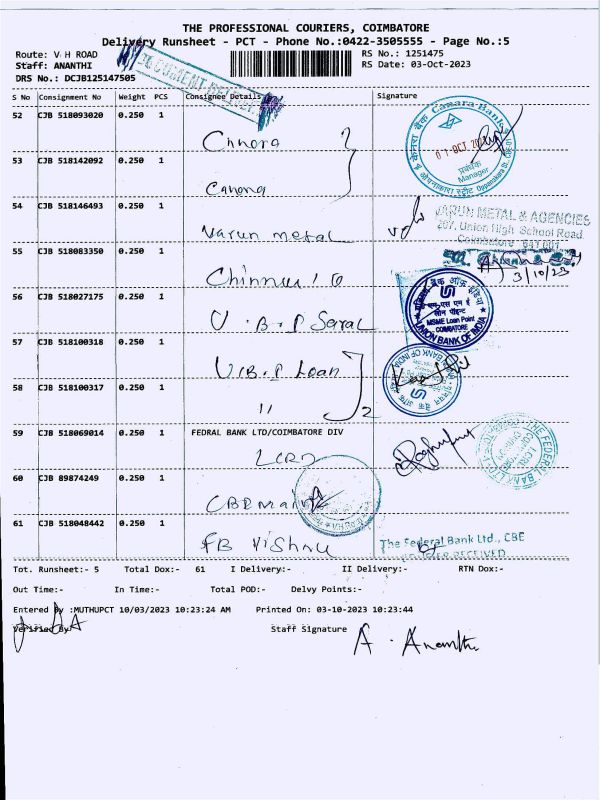 THE PROFESSIONAL COURIERS, COIMBATORE
Delivery Runsheet - PCT - Phone No.:0422-3505555 - Page No.:5
Route: V H ROAD
RS No.: 1251475
Staff: ANANTHI
RS Date: 03-Oct-2023
DRS No.: DCJB125147505
S No Consignment No Weight PCS Consignee Details Signature
52 CJB 518093020 0.250 1
Canara Bank
केनरा बैंक
प्रबंधक
Manager
53 CJB 518142092 0.250 1
Canara
54 CJB 518146493 0.250 1
Varun metal
VARUN METAL & AGENCIES
207, Union High School Road
Coimbatore 641 001
55 CJB 518083350 0.250 1
3/10/23
56 CJB 518027175 0.250 1
U.B.I Saral
MSME Loan Point
COIMBATORE
UNION BANK OF INDIA
57 CJB 518100318 0.250 1
U.B.I Loan
58 CJB 518100317 0.250 1
11 2
59 CJB 518069014 0.250 1 FEDRAL BANK LTD/COIMBATORE DIV
LCRD
THE FEDERAL BANK LTD
60 CJB 89874249 0.250 1
CBE main
61 CJB 518048442 0.250 1
FB Vishnu
The Federal Bank Ltd., CBE
Tot. Runsheet:- 5 Total Dox:- 61 I Delivery:- II Delivery:- RTN Dox:-
Out Time:- In Time:- Total POD:- Delvy Points:-
Entered By :MUTHUPCT 10/03/2023 10:23:24 AM Printed On: 03-10-2023 10:23:44
Verified By
Staff Signature
A. Ananthi